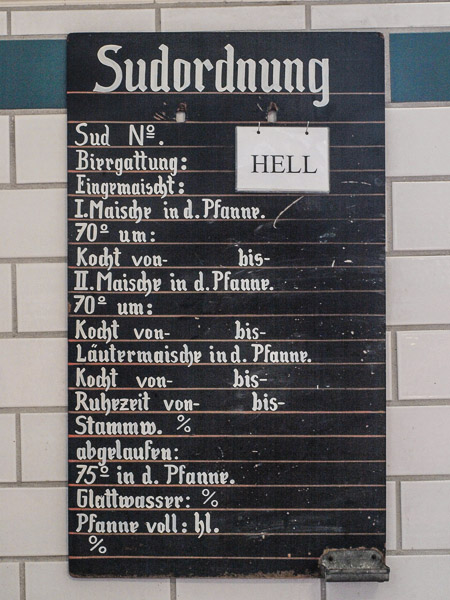 Sudordnung
Sud Nº.
Biergattung: HELL
Eingemaischt:
I. Maische in d. Pfanne.
70º um:
Kocht von- bis-
II. Maische in d. Pfanne.
70º um:
Kocht von- bis-
Läutermaische in d. Pfanne.
Kocht von- bis-
Ruhezeit von- bis-
Stammw. %
abgelaufen:
75º in d. Pfanne.
Glattwasser: %
Pfanne voll: hl.
%